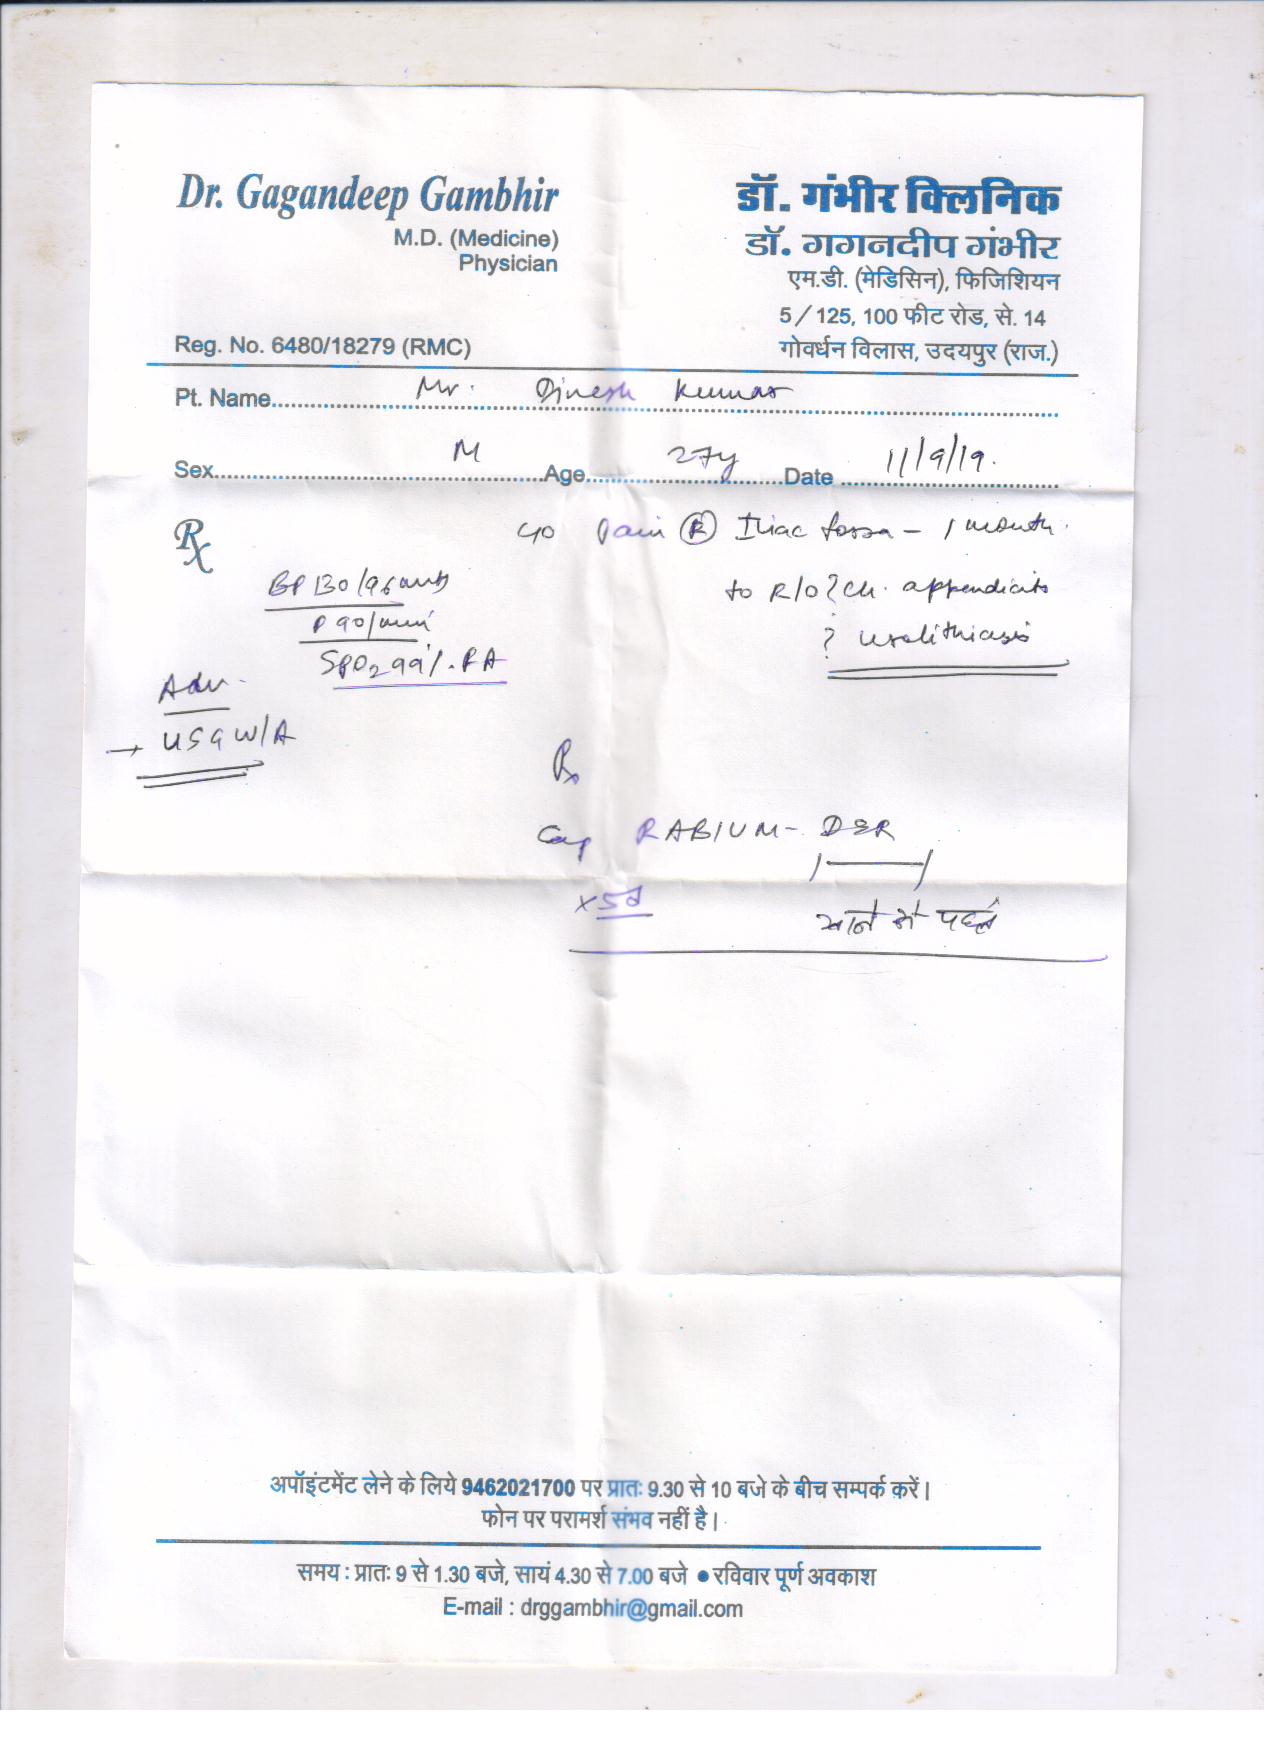 Dr. Gagandeep Gambhir
M.D. (Medicine)
Physician
Reg. No. 6480/18279 (RMC)
डॉ. गंभीर क्लिनिक
डॉ. गगनदीप गंभीर
एम.डी. (मेडिसिन), फिजिशियन
5/125, 100 फीट रोड, से. 14
गोवर्धन विलास, उदयपुर (राज.)
Pt. Name Mr. Dinesh Kumar
Sex M Age 27y Date 11/9/19.
Rx
c/o pain (R) Iliac fossa - 1 month.
to R/O ? ch. appendicits
? urolithiasis
BP 130/96 mmHg
P 90/min
SPO2 99%. RA
Adv.
→ USG W/A
Rx
Cap RABIUM - DSR
x 5d
खाने से पहले
अपॉइंटमेंट लेने के लिये 9462021700 पर प्रातः 9.30 से 10 बजे के बीच सम्पर्क करें।
फोन पर परामर्श संभव नहीं है।
समय : प्रातः 9 से 1.30 बजे, सायं 4.30 से 7.00 बजे ● रविवार पूर्ण अवकाश
E-mail : drggambhir@gmail.com